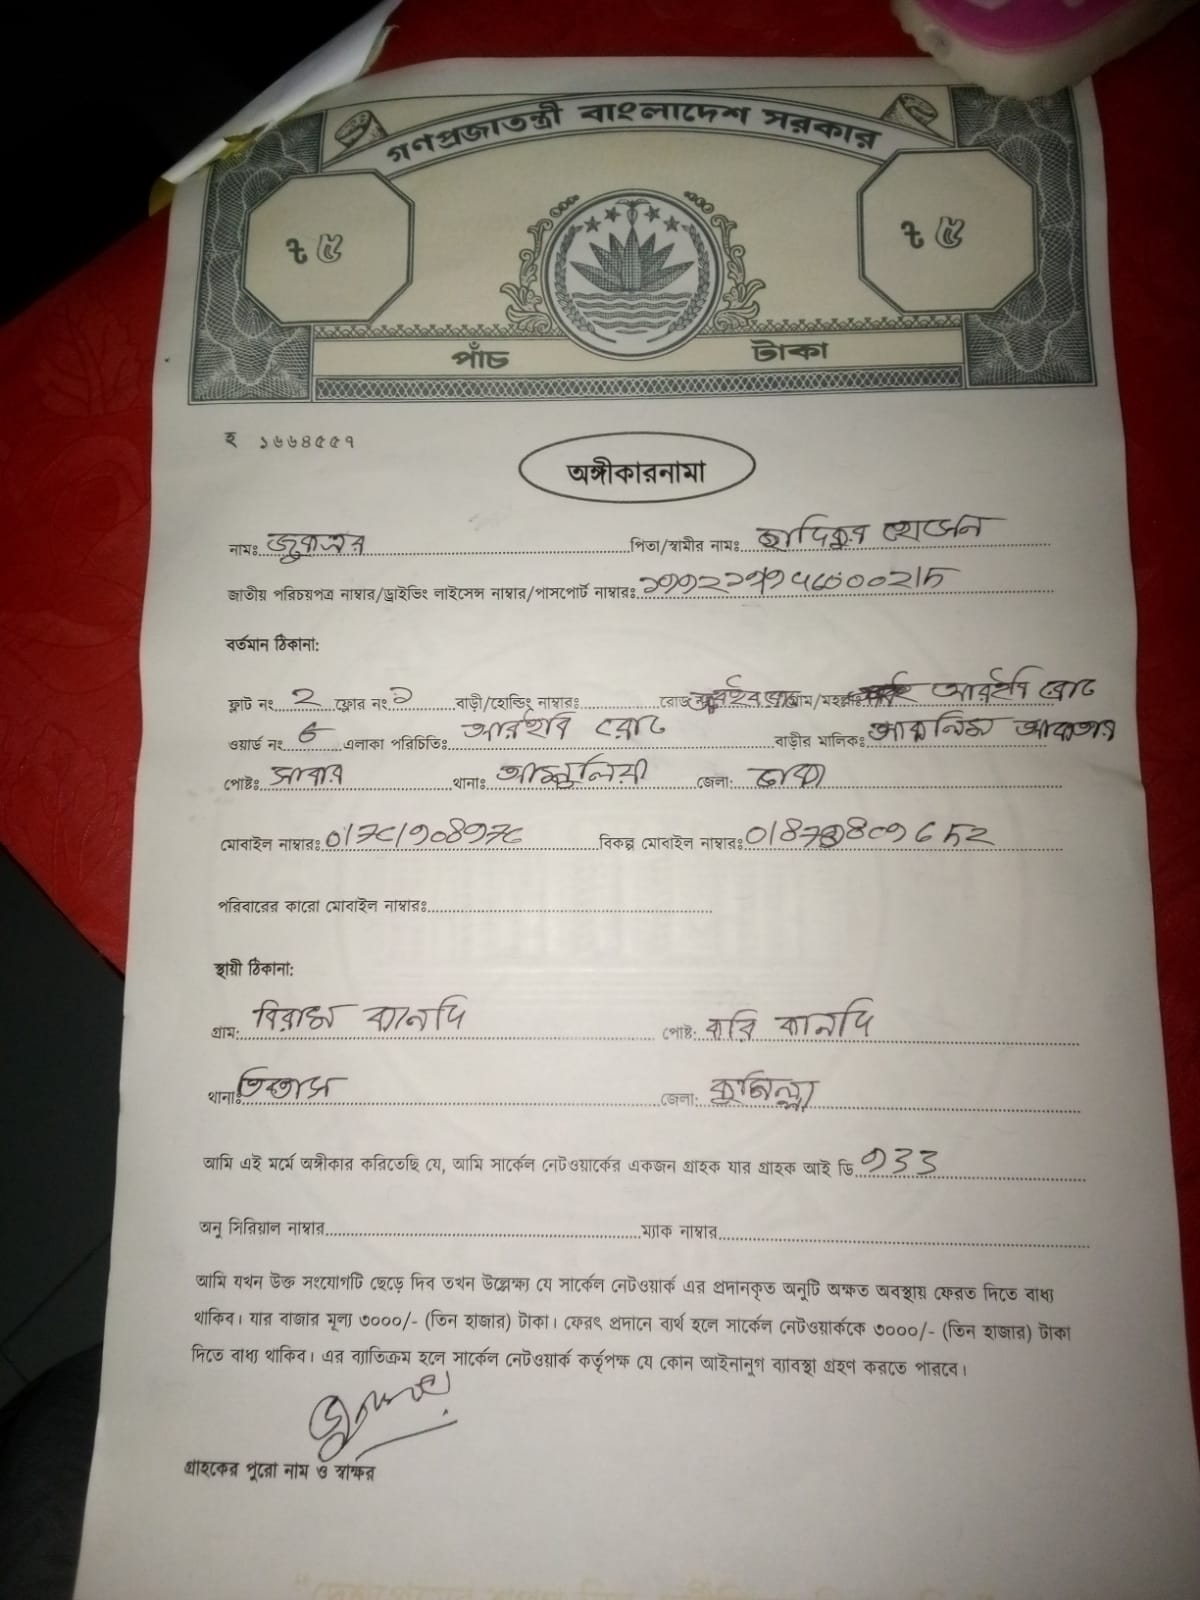 গণপ্রজাতন্ত্রী বাংলাদেশ সরকার
৳ ৫ ৳ ৫
পাঁচ টাকা
হ ১৬৬৪৫৫৭
অঙ্গীকারনামা
নামঃ পিতা/স্বামীর নামঃ ছাদিকুর হোসেন
জাতীয় পরিচয়পত্র নাম্বার/ড্রাইভিং লাইসেন্স নাম্বার/পাসপোর্ট নাম্বারঃ
বর্তমান ঠিকানা:
ফ্লাট নং 2 ফ্লোর নং ১ বাড়ী/হোল্ডিং নাম্বারঃ রোড গ্রাম/মহল্লাঃ আরইবি রোড
ওয়ার্ড নং এলাকা পরিচিতিঃ আরইবি রোড বাড়ীর মালিকঃ
পোষ্টঃ সাবার থানাঃ আশুলিয়া জেলা: ঢাকা
মোবাইল নাম্বারঃ বিকল্প মোবাইল নাম্বারঃ
পরিবারের কারো মোবাইল নাম্বারঃ
স্থায়ী ঠিকানা:
গ্রাম: বিরাম কানদি পোষ্ট: করি কানদি
থানাঃ তিতাস জেলা: কুমিল্লা
আমি এই মর্মে অঙ্গীকার করিতেছি যে, আমি সার্কেল নেটওয়ার্কের একজন গ্রাহক যার গ্রাহক আই ডি
অনু সিরিয়াল নাম্বার ম্যাক নাম্বার
আমি যখন উক্ত সংযোগটি ছেড়ে দিব তখন উল্লেক্ষ্য যে সার্কেল নেটওয়ার্ক এর প্রদানকৃত অনুটি অক্ষত অবস্থায় ফেরত দিতে বাধ্য
থাকিব। যার বাজার মূল্য ৩০০০/- (তিন হাজার) টাকা। ফেরৎ প্রদানে ব্যর্থ হলে সার্কেল নেটওয়ার্ককে ৩০০০/- (তিন হাজার) টাকা
দিতে বাধ্য থাকিব। এর ব্যাতিক্রম হলে সার্কেল নেটওয়ার্ক কর্তৃপক্ষ যে কোন আইনানুগ ব্যাবস্থা গ্রহণ করতে পারবে।
গ্রাহকের পুরো নাম ও স্বাক্ষর